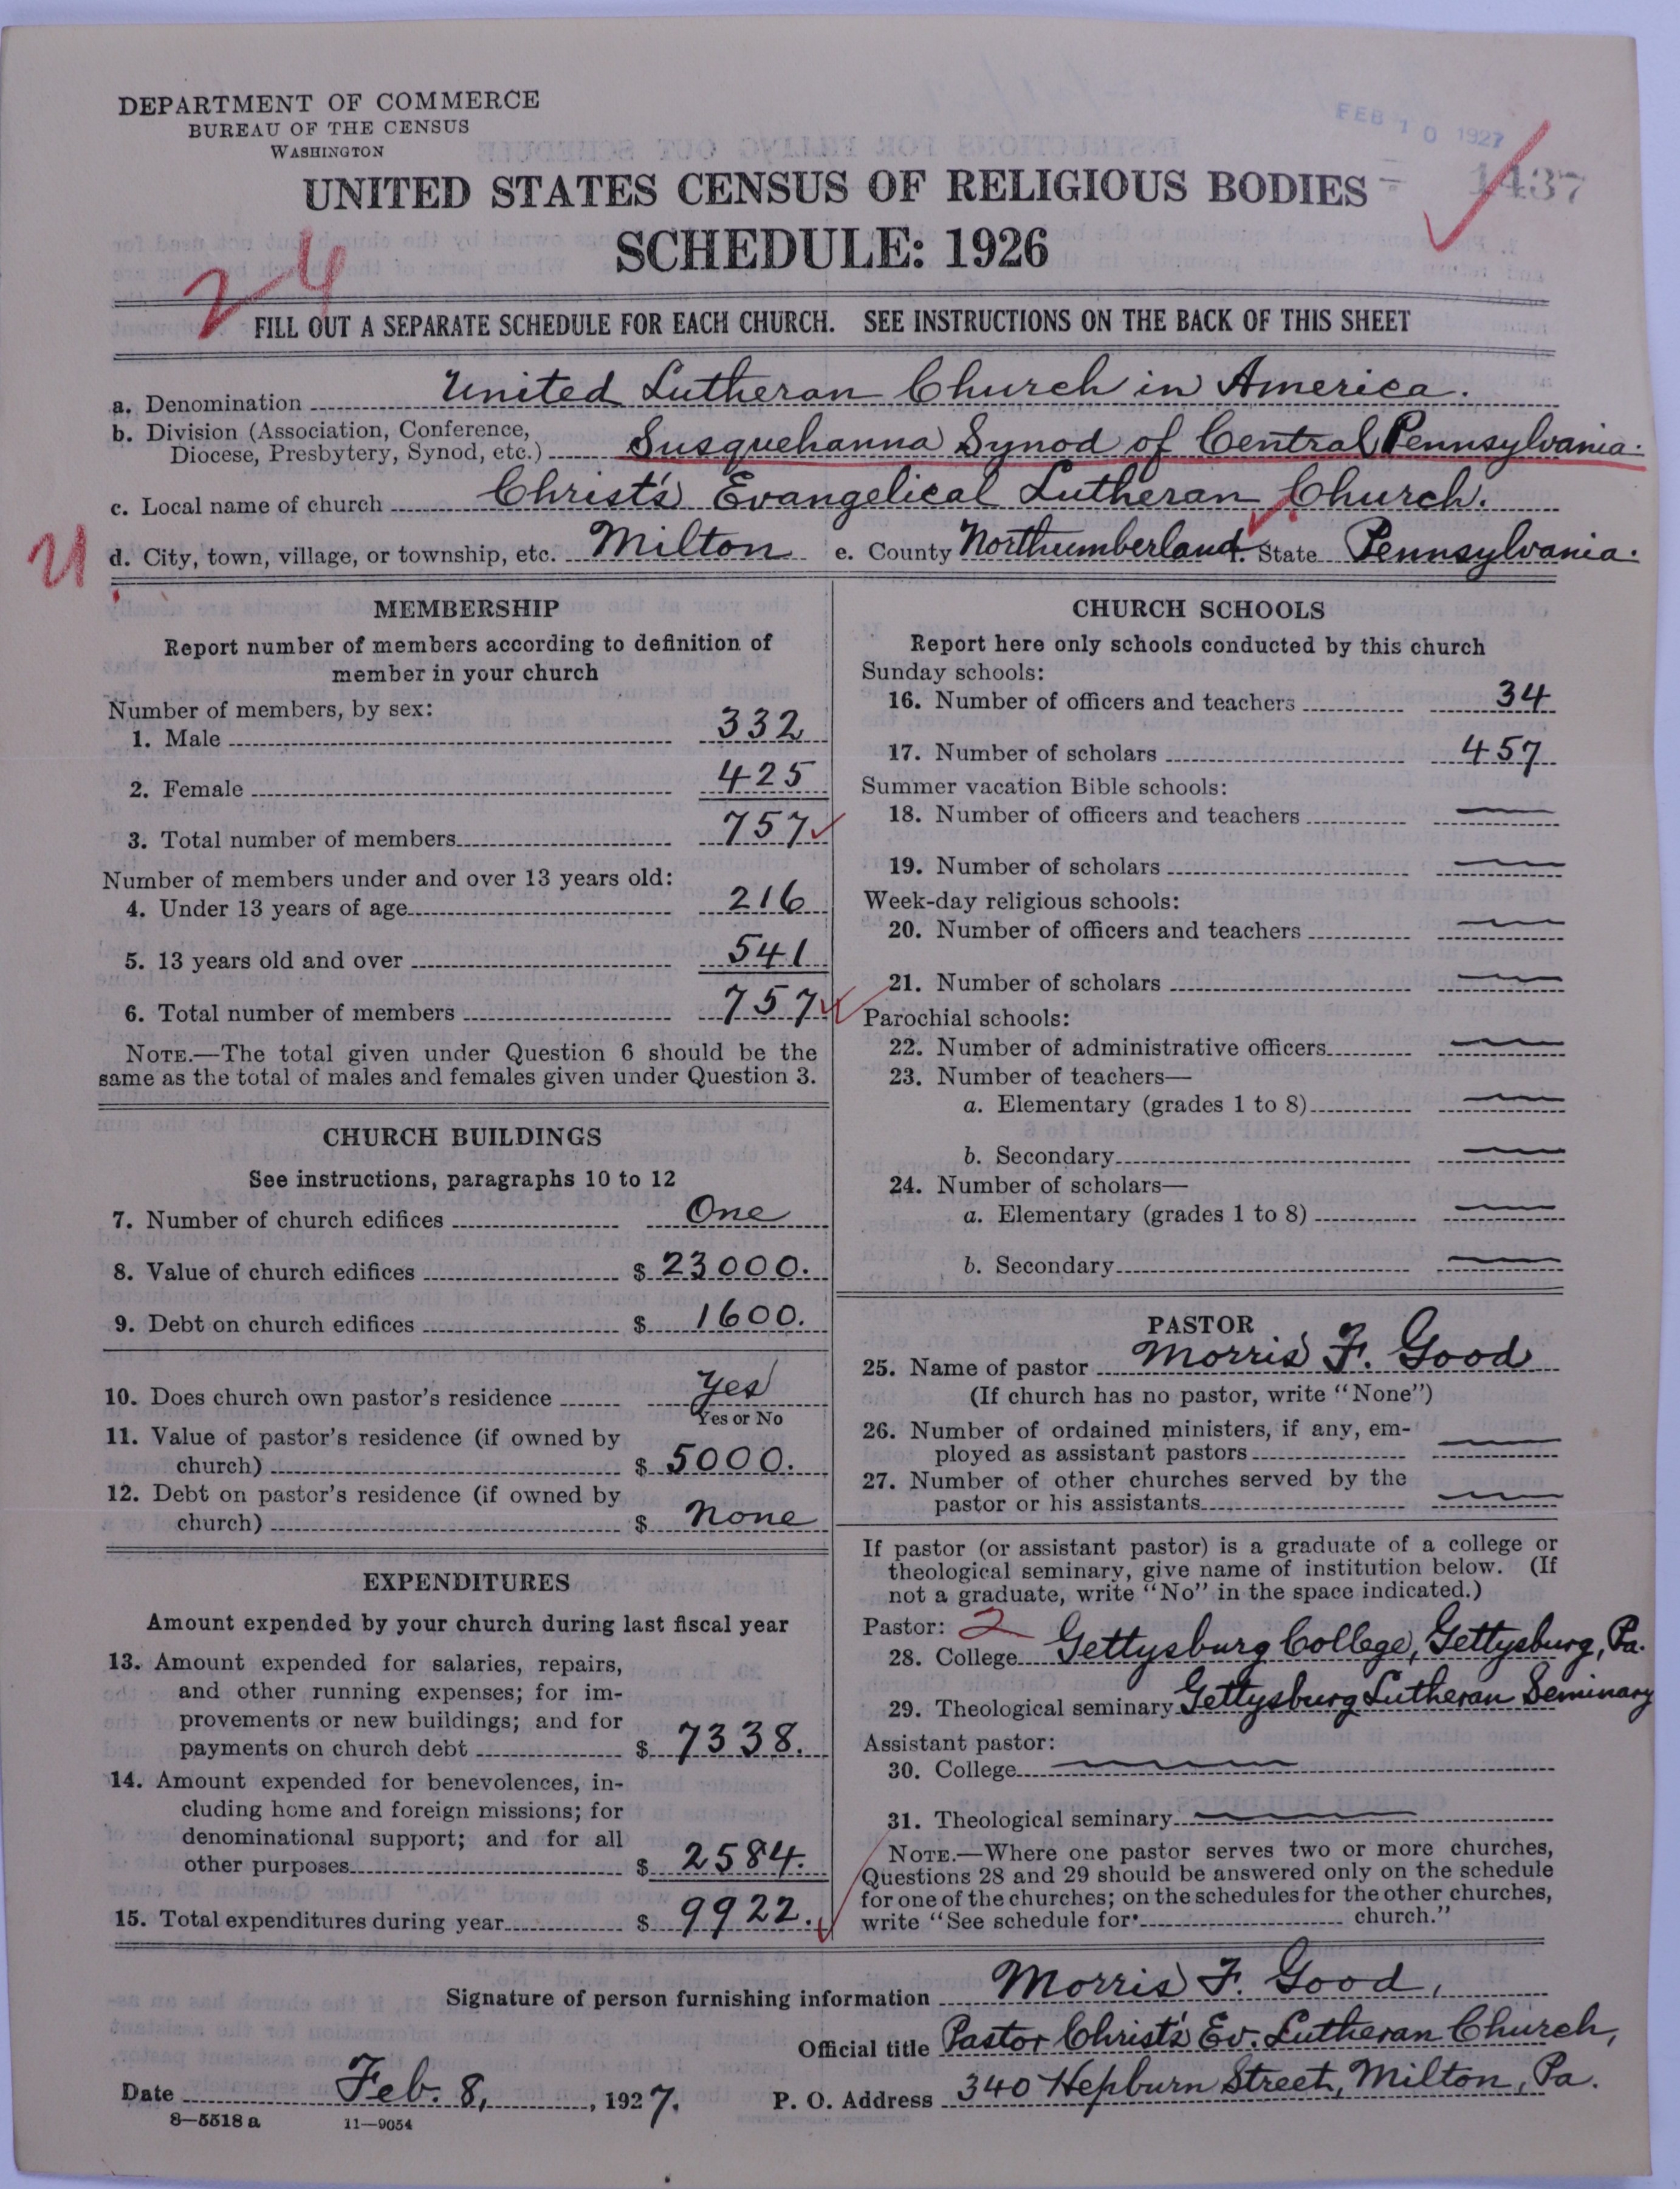 DEPARTMENT OF COMMERCE
BUREAU OF THE CENSUS
WASHINGTON
FEB 10 1927
1437
UNITED STATES CENSUS OF RELIGIOUS BODIES
SCHEDULE: 1926
24
FILL OUT A SEPARATE SCHEDULE FOR EACH CHURCH. SEE INSTRUCTIONS ON THE BACK OF THIS SHEET
a. Denomination United Lutheran Church in America.
b. Division (Association, Conference,
Diocese, Presbytery, Synod, etc.) Susquehanna Synod of Central Pennsylvania.
c. Local name of church Christ's Evangelical Lutheran Church.
d. City, town, village, or township, etc. Milton e. County Northumberland f. State Pennsylvania.
MEMBERSHIP
Report number of members according to definition of
member in your church
Number of members, by sex:
1. Male 332
2. Female 425
3. Total number of members 757
Number of members under and over 13 years old:
4. Under 13 years of age 216
5. 13 years old and over 541
6. Total number of members 757
NOTE.—The total given under Question 6 should be the
same as the total of males and females given under Question 3.
CHURCH BUILDINGS
See instructions, paragraphs 10 to 12
7. Number of church edifices One
8. Value of church edifices $ 23000.
9. Debt on church edifices $ 1600.
10. Does church own pastor's residence Yes
Yes or No
11. Value of pastor's residence (if owned by
church) $ 5000.
12. Debt on pastor's residence (if owned by
church) $ None
EXPENDITURES
Amount expended by your church during last fiscal year
13. Amount expended for salaries, repairs,
and other running expenses; for im-
provements or new buildings; and for
payments on church debt $ 7338.
14. Amount expended for benevolences, in-
cluding home and foreign missions; for
denominational support; and for all
other purposes $ 2584.
15. Total expenditures during year $ 9922.
CHURCH SCHOOLS
Report here only schools conducted by this church
Sunday schools:
16. Number of officers and teachers 34
17. Number of scholars 457
Summer vacation Bible schools:
18. Number of officers and teachers —
19. Number of scholars —
Week-day religious schools:
20. Number of officers and teachers —
21. Number of scholars —
Parochial schools:
22. Number of administrative officers —
23. Number of teachers—
a. Elementary (grades 1 to 8) —
b. Secondary —
24. Number of scholars—
a. Elementary (grades 1 to 8) —
b. Secondary —
PASTOR
25. Name of pastor Morris F. Good
(If church has no pastor, write "None")
26. Number of ordained ministers, if any, em-
ployed as assistant pastors —
27. Number of other churches served by the
pastor or his assistants —
If pastor (or assistant pastor) is a graduate of a college or
theological seminary, give name of institution below. (If
not a graduate, write "No" in the space indicated.)
Pastor: 2
28. College Gettysburg College, Gettysburg, Pa.
29. Theological seminary Gettysburg Lutheran Seminary
Assistant pastor:
30. College —
31. Theological seminary —
NOTE.—Where one pastor serves two or more churches,
Questions 28 and 29 should be answered only on the schedule
for one of the churches; on the schedules for the other churches,
write "See schedule for church."
Signature of person furnishing information Morris F. Good,
Official title Pastor Christ's Ev. Lutheran Church,
Date Feb. 8, 1927. P. O. Address 340 Hepburn Street, Milton, Pa.
8—5518 a 11—9054